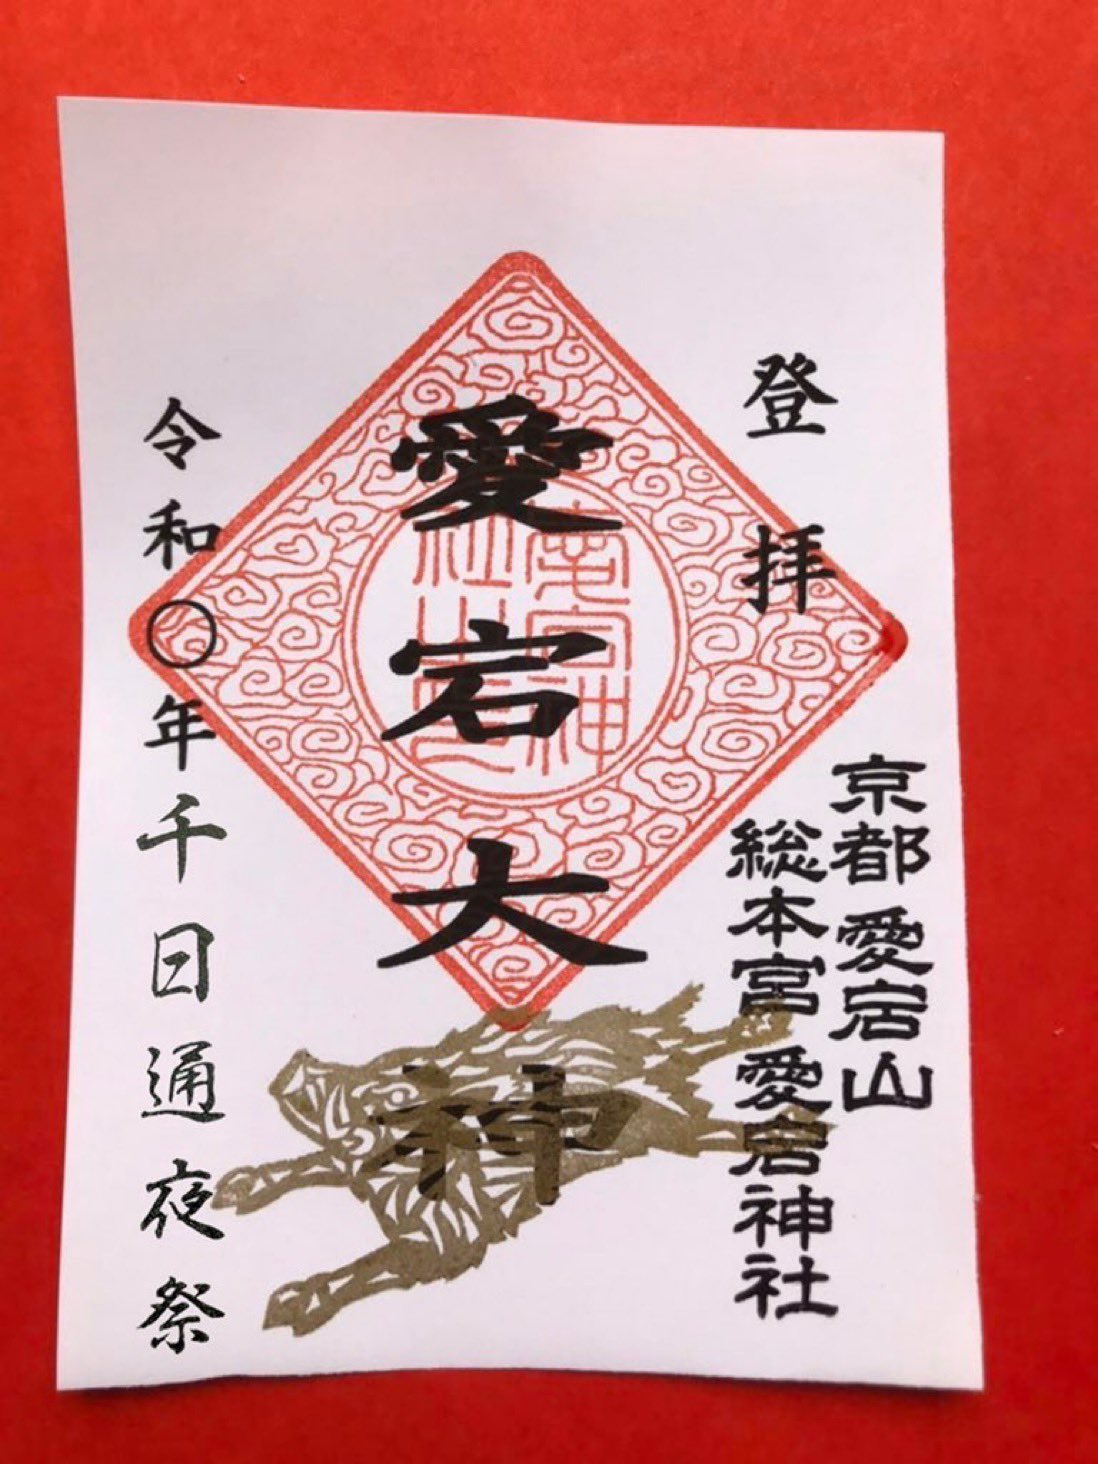 登拝
京都愛宕山
総本宮愛宕神社
愛宕大神
愛宕神社之印
令和〇年千日通夜祭